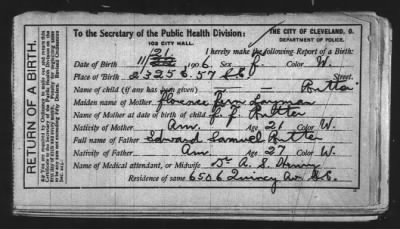 RETURN OF A BIRTH.
To the Secretary of the Public Health Division:
THE CITY OF CLEVELAND, O.
DEPARTMENT OF POLICE.
103 CITY HALL.
I hereby make the following Report of a Birth:
Date of Birth 11/21 1906 Sex f. Color W.
Place of Birth 2325 E. 57 S.E. Street.
Name of child (if any has been given) — — Rutter
Maiden name of Mother Florence Fern Layman
Name of Mother at date of birth of child F. F. Rutter
Nativity of Mother Am. Age 21 Color W.
Full name of Father Edward Samuel Rutter
Nativity of Father Am. Age 27 Color W.
Name of Medical attendant, or Midwife Dr A. S.
Residence of same 6506 Quincy Av S.E.